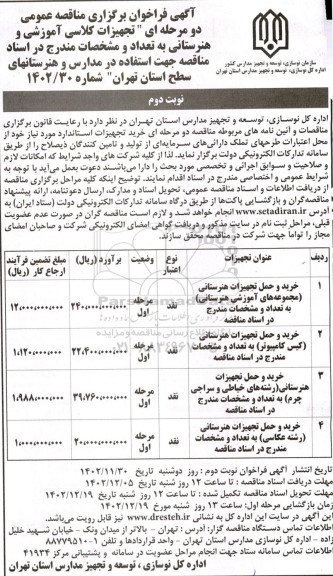 آگهی فراخوان برگزاری مناقصه عمومی
دو مرحله ای " تجهیزات کلاسی آموزشی و
هنرستانی به تعداد و مشخصات مندرج در اسناد
مناقصه جهت استفاده در مدارس و هنرستانهای
سطح استان تهران" شماره ۱۴۰۲/۳۰
سازمان نوسازی، توسعه و تجهیز مدارس کشور
اداره کل نوسازی، توسعه و تجهیز مدارس استان تهران
نوبت دوم
اداره کل نوسازی، توسعه و تجهیز مدارس استان تهران در نظر دارد با رعایت قانون برگزاری
مناقصات و آئین نامه های مربوطه مناقصه دو مرحله ای خرید تجهیزات استاندارد مورد نیاز خود از
محل اعتبارات طرحهای تملک دارائی های سرمایه ای از تولید و تامین کنندگان ذیصلاح را از طریق
سامانه تدارکات الکترونیکی دولت برگزار نماید. لذا از کلیه شرکت های واجد شرایط که امکانات لازم
و صلاحیت و سوابق اجرائی و تخصصی مورد بحث را دارا می‌باشند دعوت بعمل می‌آید با توجه به
شرایط عمومی و اختصاصی مندرج در اسناد اقدام نمایند. توضیح اینکه کلیه مراحل برگزاری مناقصه
از دریافت اطلاعات و اسناد مناقصه عمومی، تحویل اسناد و مدارک، ارسال دعوتنامه، ارائه پیشنهاد
مناقصه‌گران و بازگشایی پاکت‌ها از طریق درگاه سامانه تدارکات الکترونیکی دولت (ستاد ایران) به
آدرس www.setadiran.ir انجام خواهد شد و لازم است مناقصه گران در صورت عدم عضویت
قبلی، مراحل ثبت نام در سایت مذکور و دریافت گواهی امضای الکترونیکی شرکت و صاحبان امضای
مجاز را تواما جهت شرکت در مناقصه محقق سازند.
ردیف عنوان تجهیزات نوع اعتبار وضعیت برآورد (ریال) مبلغ تضمین فرآیند ارجاع کار (ریال)
۱ خرید و حمل تجهیزات هنرستانی (مجموعه‌های آموزشی هنرستانی) به تعداد و مشخصات مندرج در اسناد مناقصه نقد مرحله اول ۲۴۰,۰۰۰,۰۰۰,۰۰۰ ۱۲,۰۰۰,۰۰۰,۰۰۰
۲ خرید و حمل تجهیزات هنرستانی (کیس کامپیوتر) به تعداد و مشخصات مندرج در اسناد مناقصه نقد مرحله اول ۲۲,۴۰۰,۰۰۰,۰۰۰ ۱,۱۲۰,۰۰۰,۰۰۰
۳ خرید و حمل تجهیزات هنرستانی(رشته‌های خیاطی و سراجی چرم) به تعداد و مشخصات مندرج در اسناد مناقصه نقد مرحله اول ۳۹,۷۶۰,۰۰۰,۰۰۰ ۱,۹۸۸,۰۰۰,۰۰۰
۴ خرید و حمل تجهیزات هنرستانی (رشته عکاسی) به تعداد و مشخصات مندرج در اسناد مناقصه نقد مرحله اول ۲۰,۰۰۰,۰۰۰,۰۰۰ ۱,۰۰۰,۰۰۰,۰۰۰
تاریخ انتشار آگهی فراخوان نوبت دوم: روز دوشنبه تاریخ ۱۴۰۲/۱۱/۳۰
مهلت دریافت اسناد مناقصه : تا ساعت ۱۲ روز شنبه تاریخ ۱۴۰۲/۱۲/۰۵
مهلت تحویل اسناد مناقصه تکمیل شده : تا ساعت ۱۲ روز شنبه تاریخ ۱۴۰۲/۱۲/۱۹
زمان بازگشایی مرحله اول: ساعت ۱۳ روز شنبه مورخ ۱۴۰۲/۱۲/۱۹
این آگهی در سایت این اداره کل به نشانی www.dresteh.ir نیز قابل رویت می‌باشد.
اطلاعات تماس دستگاه مناقصه گزار: آدرس : تهران – بالاتر از میدان ونک – خیابان شهید خلیل
زاده – اداره کل نوسازی مدارس استان تهران – واحد قراردادها و تلفن ۱-۸۸۷۷۹۵۱۰
اطلاعات تماس سامانه ستاد جهت انجام مراحل عضویت در سامانه و پشتیبانی مرکز ۴۱۹۳۴
اداره کل نوسازی ، توسعه و تجهیز مدارس استان تهران